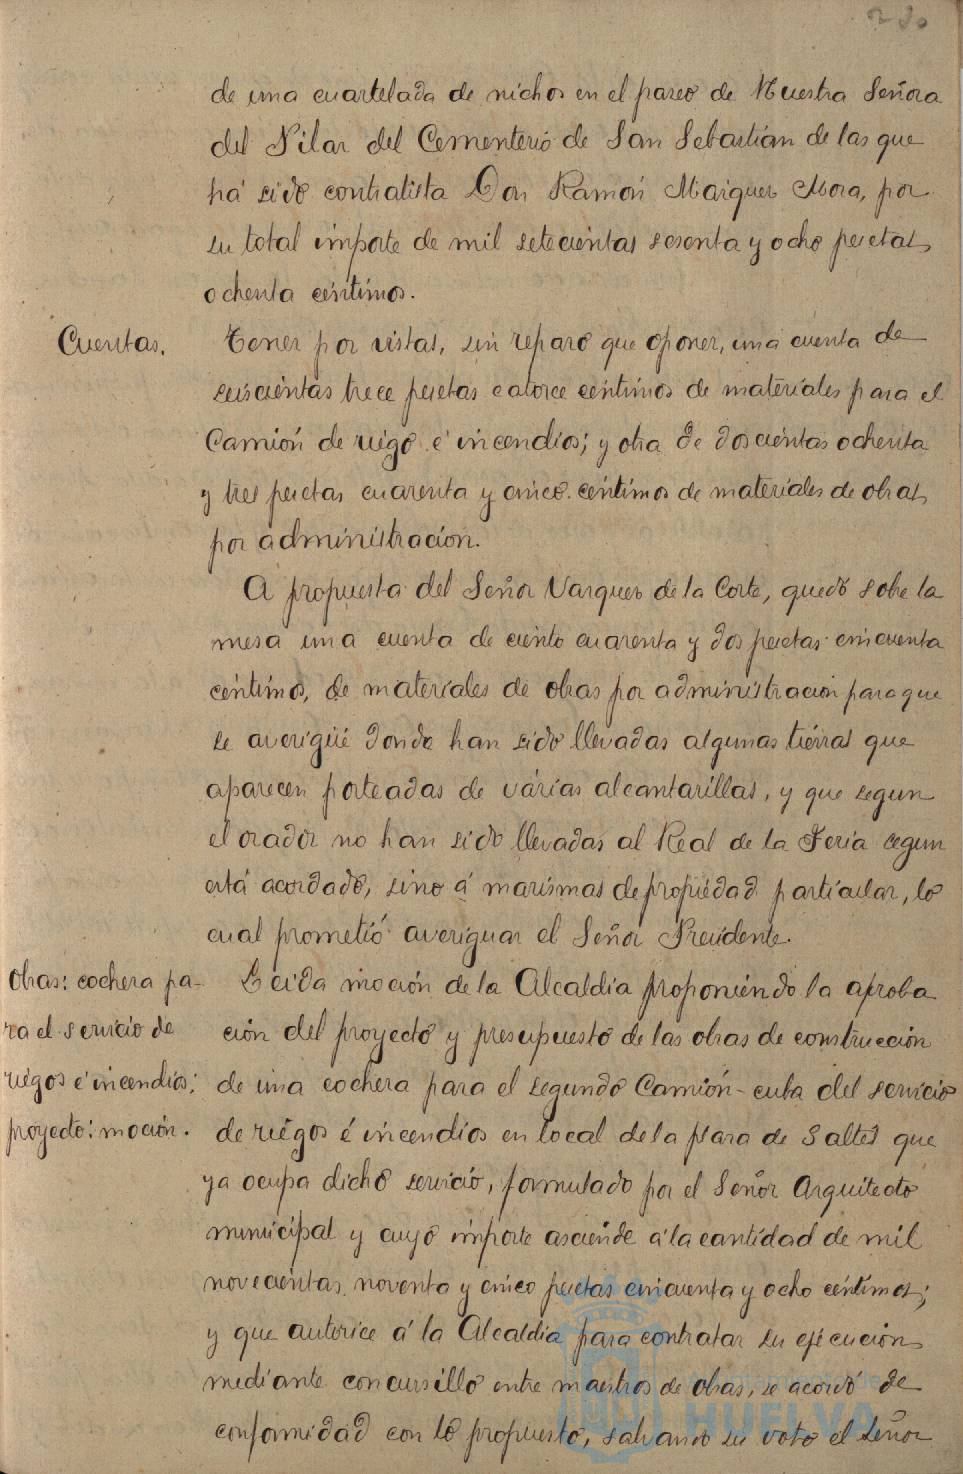 de una cuartelada de nichos en el paseo de Nuestra Señora
del Pilar del Cementerio de San Sebastián de las que
há sido contratista Don Ramón Márquez Mora, por
su total importe de mil setecientas sesenta y ocho pesetas
ochenta céntimos.
Cuentas.
Tener por vistas, sin reparo que oponer, una cuenta de
seiscientas trece pesetas catorce céntimos de materiales para el
Camión de riego é incendios; y otra de doscientas ochenta
y tres pesetas cuarenta y cinco céntimos de materiales de obras
por administración.
A propuesta del Señor Vasquez de la Corte, quedó sobre la
mesa una cuenta de ciento cuarenta y dos pesetas cincuenta
céntimos, de materiales de obras por administración para que
se averigüe donde han sido llevadas algunas tierras que
aparecen porteadas de várias alcantarillas, y que segun
el orador no han sido llevadas al Real de la Feria segun
está acordado, sino á marismas de propiedad particular, lo
cual prometió averiguar el Señor Presidente.
Obras: cochera pa-
ra el servicio de
riegos é incendios:
proyecto: moción.
Leida moción de la Alcaldía proponiendo la aproba
ción del proyecto y presupuesto de las obras de construcción
de una cochera para el segundo Camión-cuba del servicio
de riegos é incendios en local de la plaza de Saltés que
ya ocupa dicho servicio, formulado por el Señor Arquitecto
municipal y cuyo importe asciende á la cantidad de mil
novecientas noventa y cinco pesetas cincuenta y ocho céntimos;
y que autorice á la Alcaldía para contratar su ejecución
mediante concursillo entre maestros de obras, se acordó de
conformidad con lo propuesto, salvando su voto el Señor
Ayuntamiento de
HUELVA